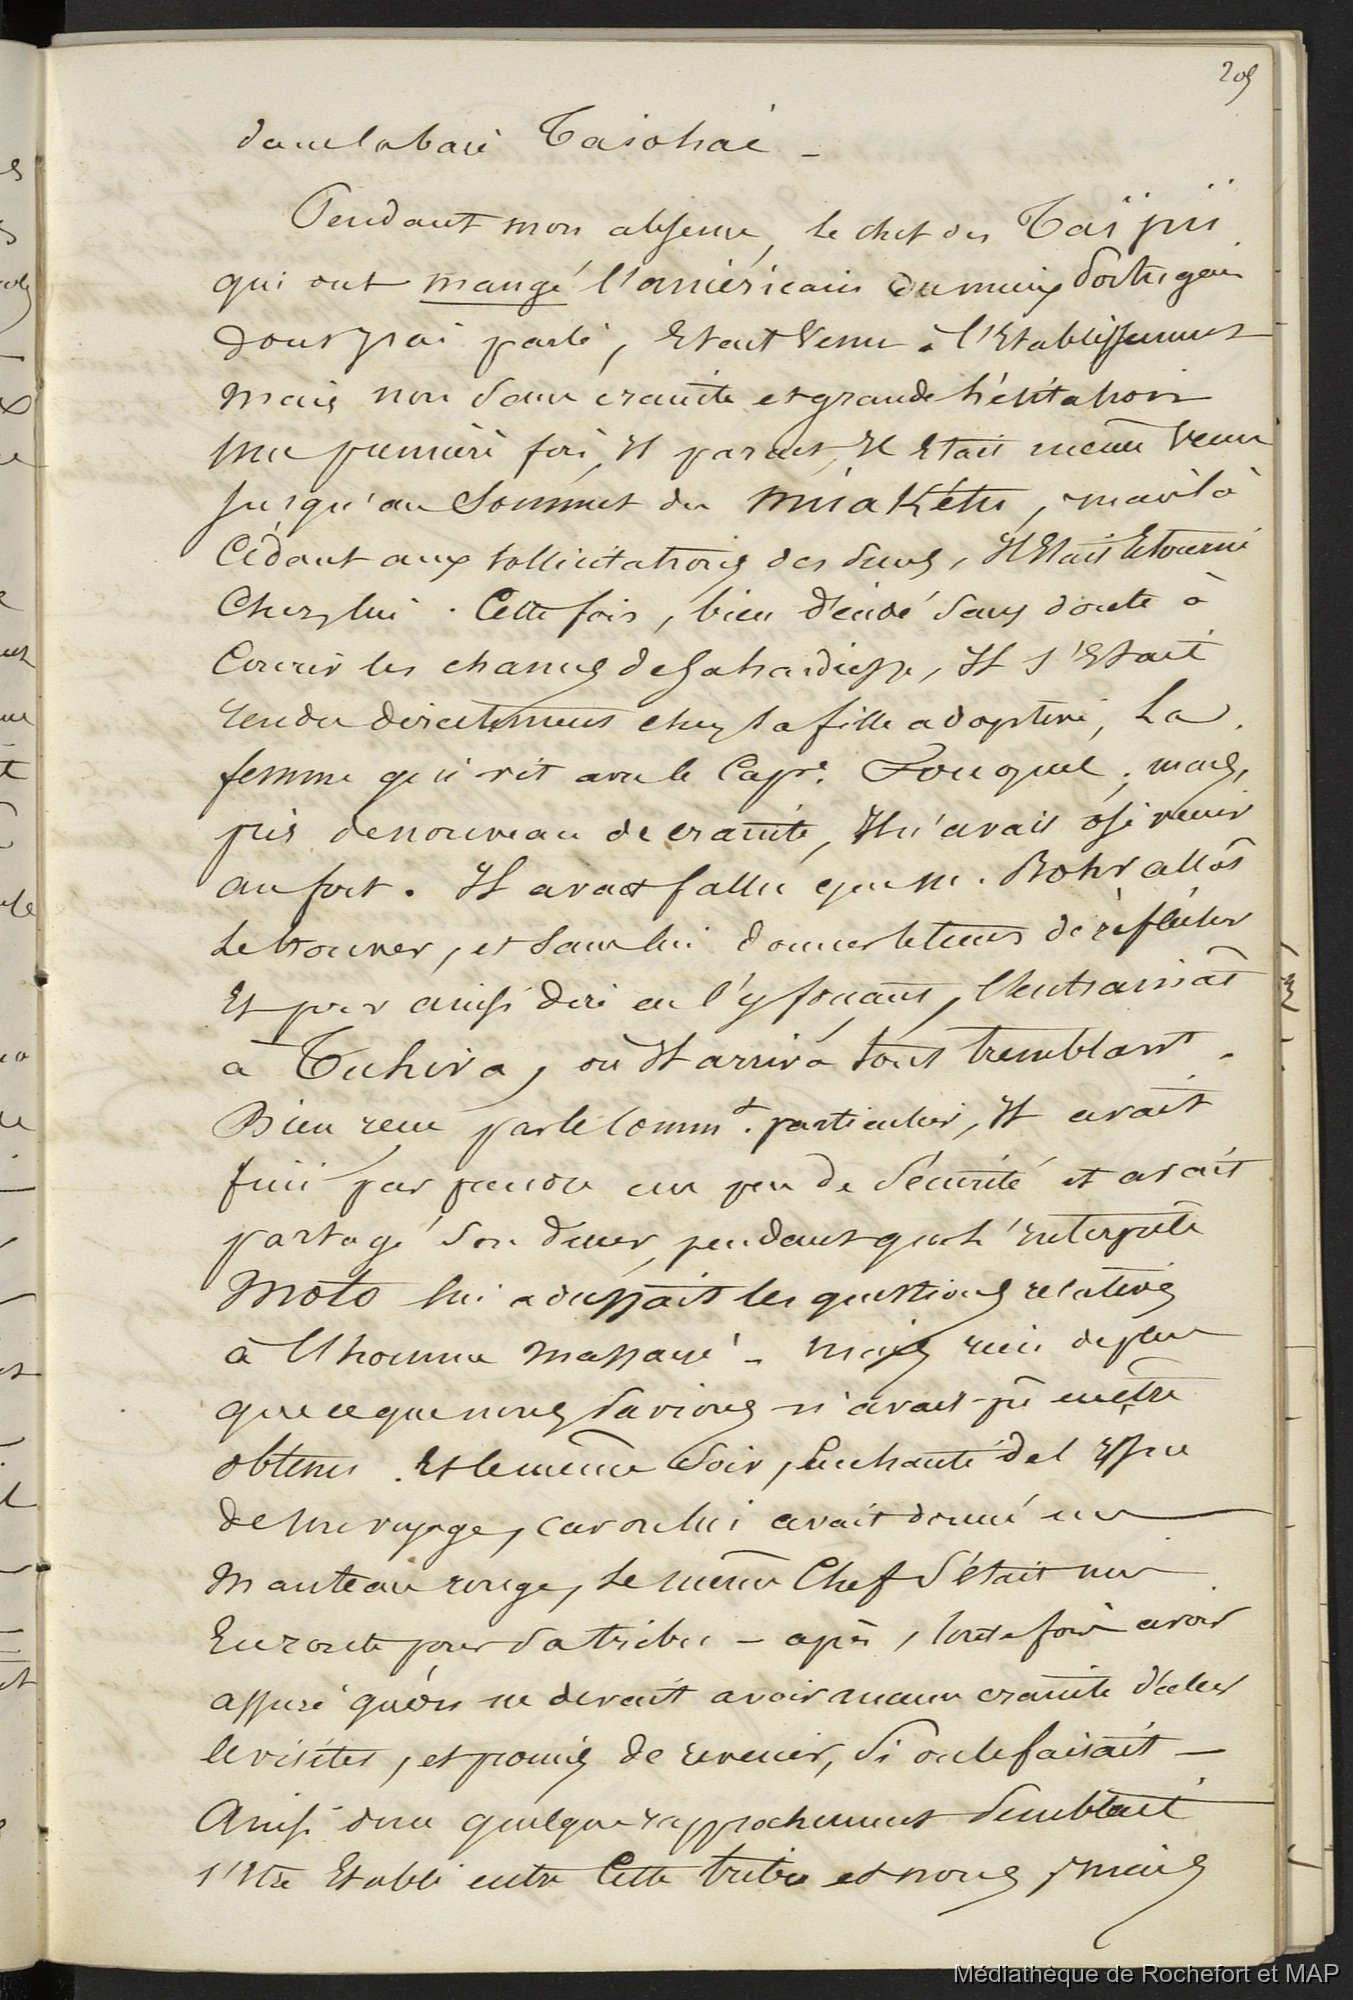 209
dans la baie Taiohaé -
Pendant mon absence, le chef des Taïpii
qui ont mangé l'américain ou mieux Portugais
dont j'ai parlé, était venu à l'Etablissement
mais non sans crainte et grande hésitation
une première fois, il parait, il était même venu
jusqu'au Sommet du Miakétu, mais là
cédant aux sollicitations des siens, il était retourné
chez lui. Cette fois, bien décidé sans doute à
courir les chances de sa hardiesse, il s'était
rendu directement chez sa fille adoptive, la
femme qui vit avec le Cape. Fouquet; mais,
pris de nouveau de crainte, il n'avait osé venir
au fort. Il avait fallu que m. Rohr allât
le trouver, et sans lui donner le tems de réfléchir
et pour ainsi dire en l'y forçant, l'entrainât
à Tuhiva, où il arriva tout tremblant.
Bien reçu par le Commt. particulier, il avait
fini par prendre un peu de sécurité et avait
partagé son diner, pendant que l'interprète
Moto lui adressait les questions relatives
à l'homme massacré - mais rien de plus
que ce que nous savions n'avait pû en être
obtenu. Et le même soir, enchanté de l'issue
de son voyage, car on lui avait donné un
manteau rouge, le même Chef s'était mis
en route pour sa tribu - après, toutefois avoir
assuré qu'on ne devait avoir aucune crainte d'aller
le visiter, et promis de revenir, si on le faisait -
Ainsi donc quelque rapprochement semblait
s'être établi entre cette tribu et nous, mais
Médiathèque de Rochefort et MAP